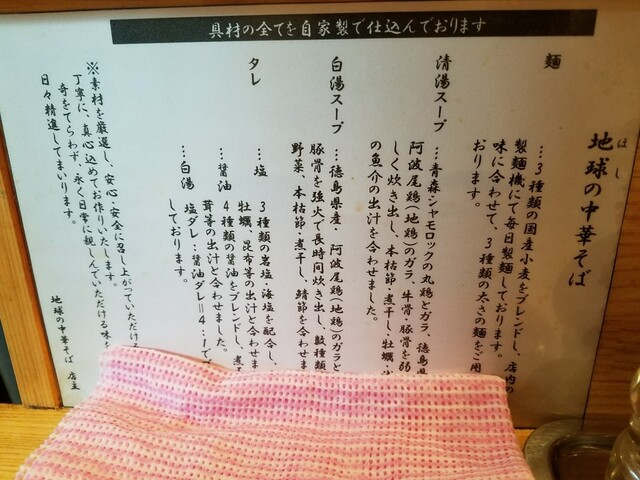 具材の全てを自家製で仕込んでおります
はし
地球の中華そば
麺
…３種類の国産小麦をブレンドし、店内の
製麺機にて毎日製麺しております。
味に合わせて、３種類の太さの麺をご用
おります。
清湯スープ
…青森・シャモロックの丸鶏とガラ、徳島県
阿波尾鶏(地鶏)のガラ、牛骨・豚骨を
しく炊き出し、本枯節・煮干し・牡蠣・
の魚介の出汁を合わせました。
白湯スープ
…徳島県産・阿波尾鶏(地鶏)のガラと
豚骨を強火で長時間炊き出し、数種類
野菜、本枯節・煮干し、鯖節を合わせま
タレ
…塩 ３種類の岩塩・海塩を配合し、
牡蠣、昆布等の出汁と合わせま
…醤油 ４種類の醤油をブレンドし、煮干
茸等の出汁と合わせました。
…白湯 塩ダレ：醤油ダレ＝４：１で
しております。
※素材を厳選し、安心・安全に召し上がっていただける
丁寧に、真心込めてお作りいたします。
奇をてらわず、永く日常に親しんでいただける味を
日々精進してまいります。
地球の中華そば 店主